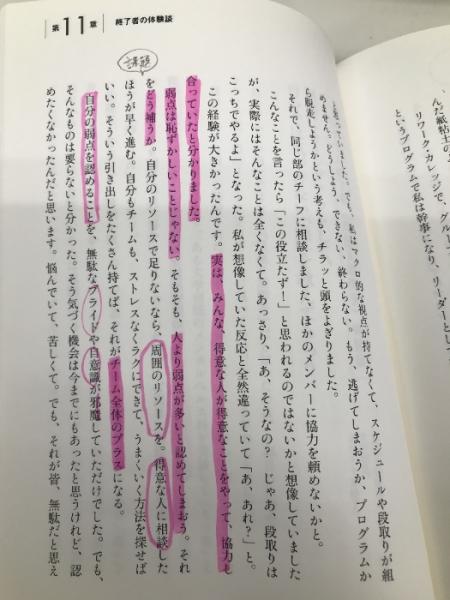 第11章 終了者の体験談
課題
と思っていました。でも、私はマクロ的な視点が持てなくて、スケジュールや段取りが組
めません。どうしよう、できない、終わらない。もう、逃げてしまおうか、プログラムか
ら脱走しようかという考えも、チラッと頭をよぎりました。
それで、同じ部のチーフに相談しました、ほかのメンバーに協力を頼めないかと。
こんなことを言ったら「この役立たず！」と思われるのではないかと想像していました
が、実際にはそんなことは全くなくて。あっさり、「あ、そうなの？　じゃあ、段取りは
こっちでやるよ」となった。私が想像していた反応と全然違っていて「あ、あれ？」と。
この経験が大きかったんです。実は、みんな、得意な人が得意なことをやって、協力し
合っていたと分かりました。
弱点は恥ずかしいことじゃない。そもそも、人より弱点が多いと認めてしまおう。それ
をどう補うか。自分のリソースで足りないなら、周囲のリソースを。得意な人に相談した
ほうが早く進む。自分もチームも、ストレスなくラクにできて、うまくいく方法を探せば
いい。そういう引き出しをたくさん持てば、それがチーム全体のプラスになる。
自分の弱点を認めることを、無駄なプライドや自意識が邪魔していただけでした。でも、
そんなものは要らないと分かった。そう気づく機会は今までにもあったと思うけれど、認
めたくなかったんだと思います。悩んでいて、苦しくて。でも、それが皆、無駄だと思え
んだ紙粘土の
リワーク・カレッジで、グルー
というプログラムで私は幹事になり、リーダーとし